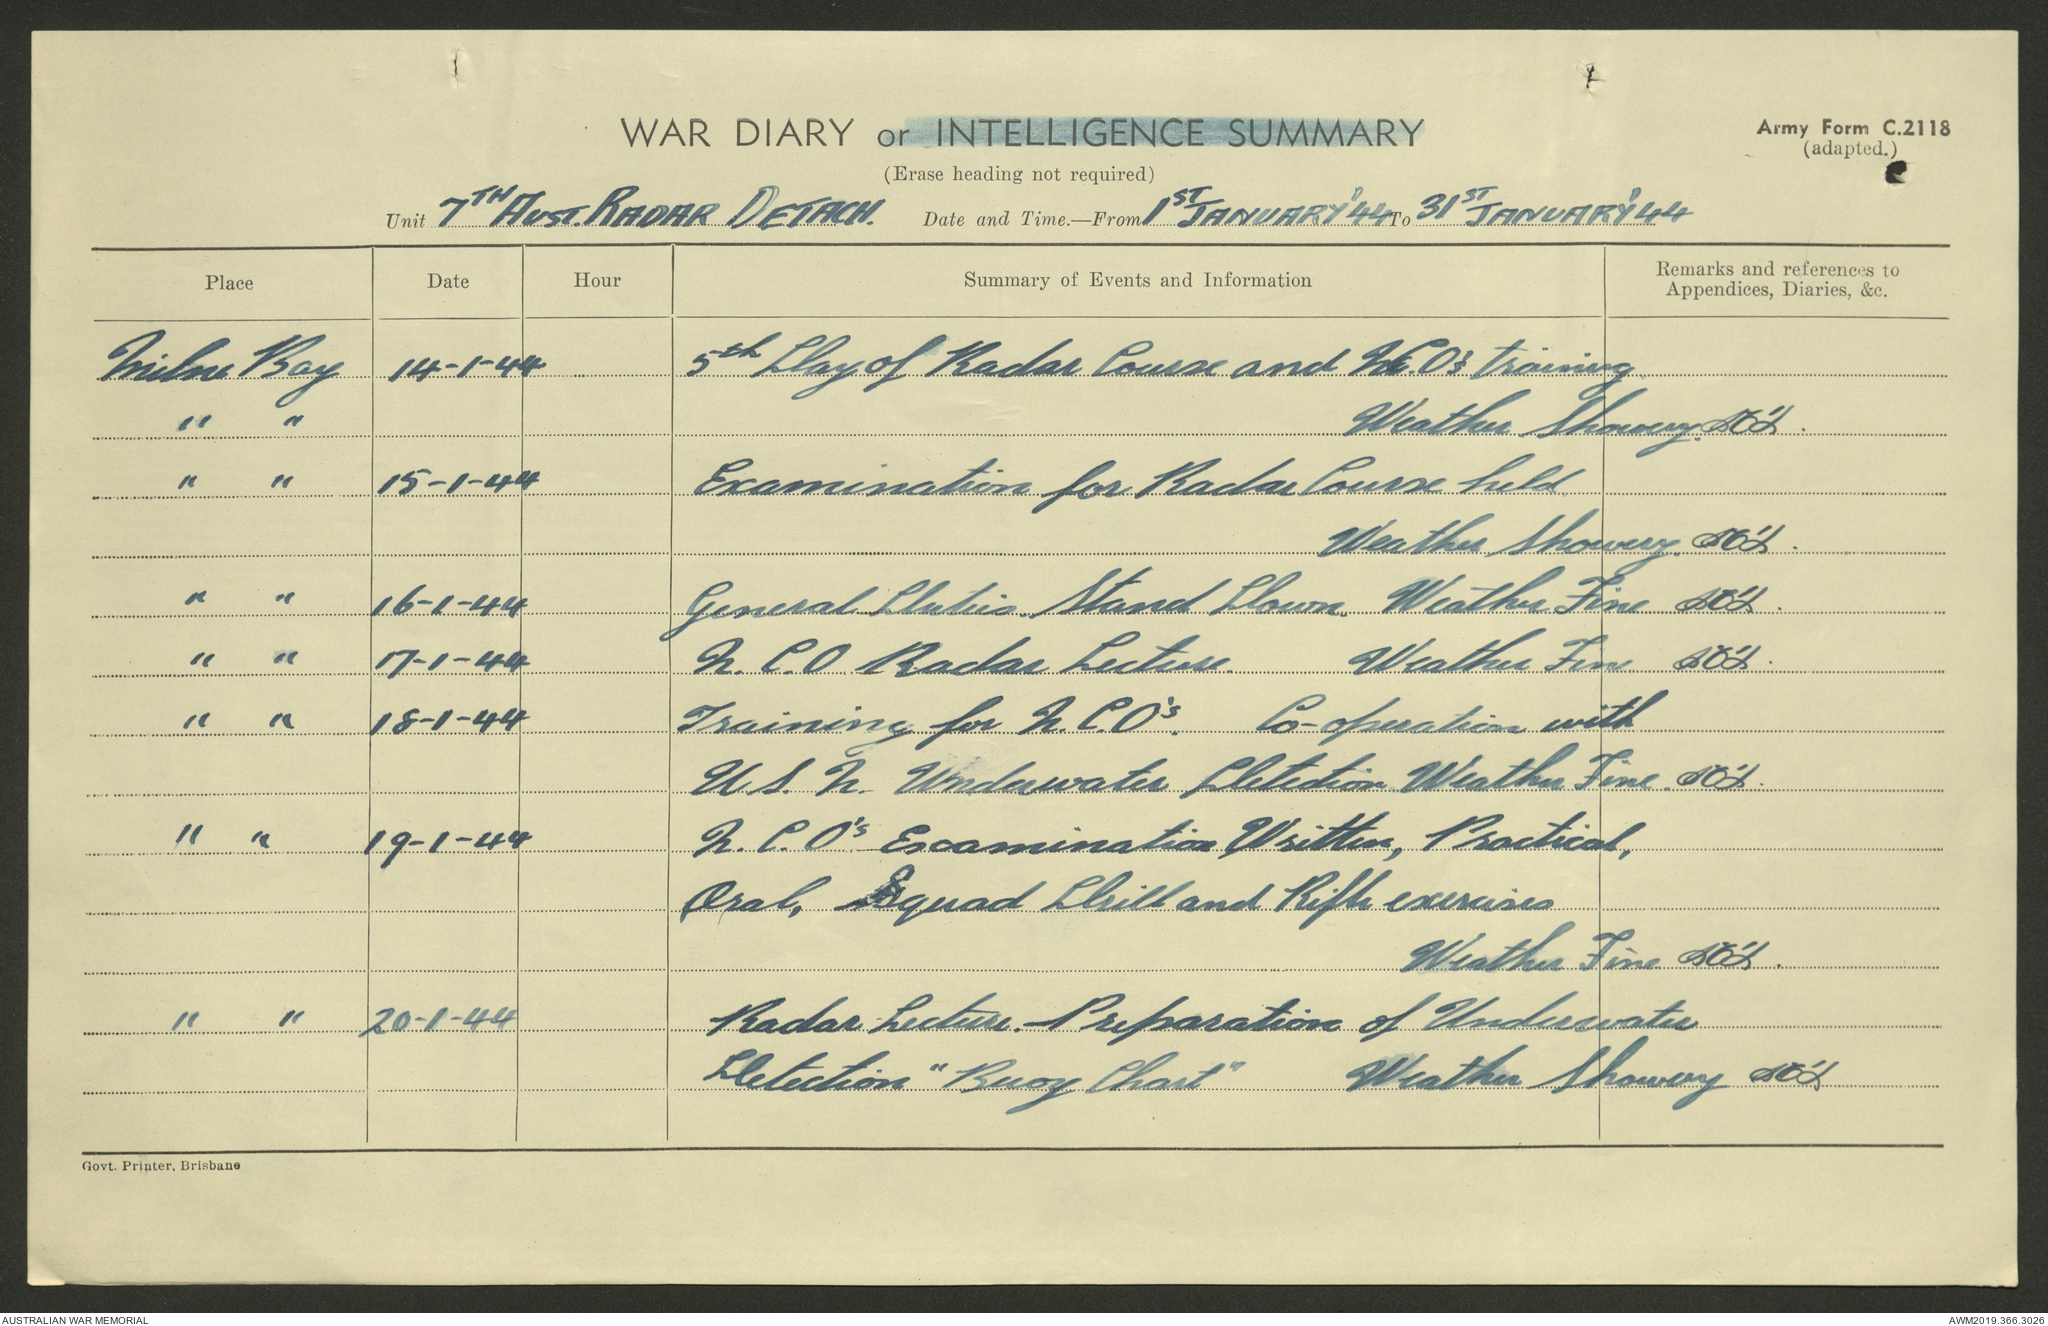 WAR DIARY or INTELLIGENCE SUMMARY
Army Form C.2118
(adapted.)
(Erase heading not required)
Unit 7TH AUST. RADAR DETACH. Date and Time.—From 1ST JANUARY '44 To 31ST JANUARY '44
Place Date Hour Summary of Events and Information Remarks and references to
Appendices, Diaries, &c.
Milne Bay 14-1-44 5th Day of Radar Course and N.C.O's training
" " Weather Showery.
" " 15-1-44 Examination for Radar Course held
Weather Showery.
" " 16-1-44 General Duties. Stand Down. Weather Fine
" " 17-1-44 N.C.O. Radar Lecture. Weather Fine
" " 18-1-44 Training for N.C.O's. Co-operation with
U.S.N. Underwater Detection. Weather Fine.
" " 19-1-44 N.C.O's Examination Written, Practical,
Oral, Squad Drill and Rifle exercises
Weather Fine
" " 20-1-44 Radar Lecture. Preparation of Underwater
Detection "Buoy Chart" Weather Showery
Govt. Printer, Brisbane
AUSTRALIAN WAR MEMORIAL
AWM2019.366.3026